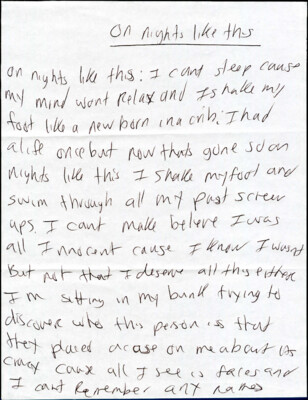 On nights like this
On nights like this: I cant sleep cause
my mind wont relax and I shake my
foot like a newborn in a crib: I had
a life once but now thats gone so on
nights like this I shake my foot and
swim through all my past screw
ups I cant make believe I was
all Innocent cause I knew I wasnt
But not that I deserve all this either
I'm sitting in my bunk trying to
discover who this person is that
they placed a case on me about its
crazy cause all I see is faces and
I cant Remember any names